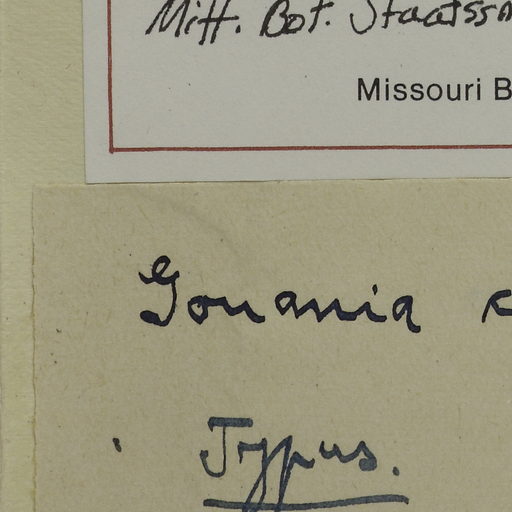 Mitt. Bot. Staatss
Missouri B
Gouania c
Typus.